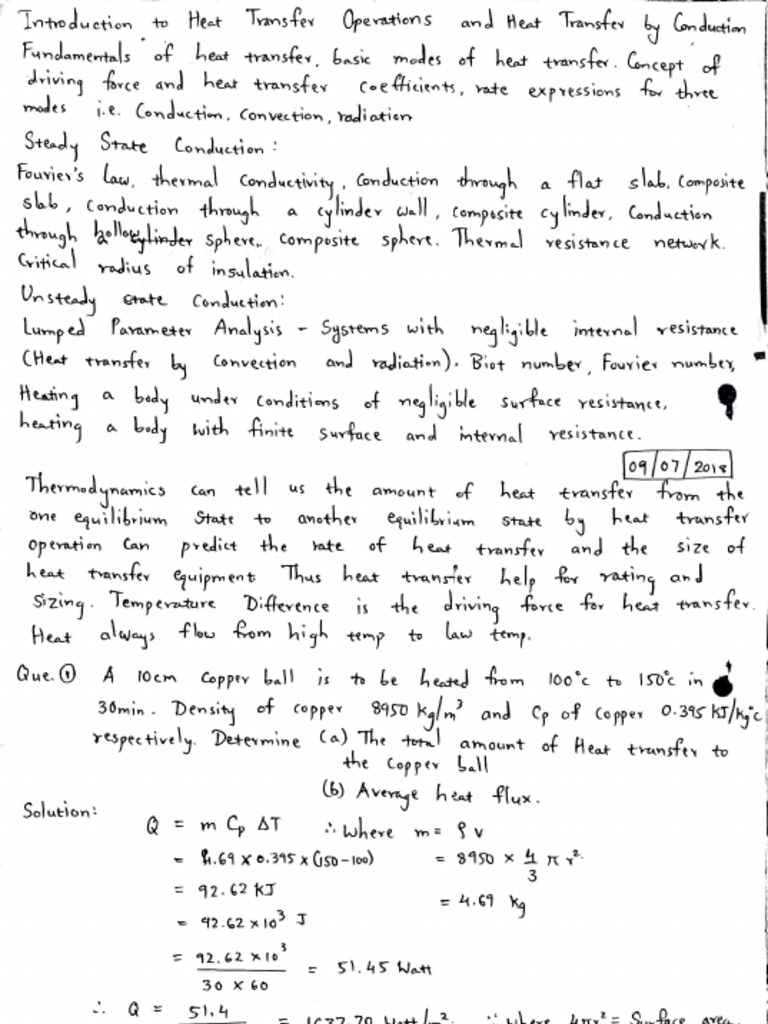 Introduction to Heat Transfer Operations and Heat Transfer by Conduction
Fundamentals of heat transfer, basic modes of heat transfer. Concept of
driving force and heat transfer coefficients, rate expressions for three
modes i.e. Conduction, convection, radiation
Steady State Conduction:
Fourier's Law, thermal conductivity, conduction through a flat slab, composite
slab, conduction through a cylinder wall, composite cylinder, conduction
through hollow sphere, composite sphere. Thermal resistance network.
Critical radius of insulation.
Unsteady state Conduction:
Lumped Parameter Analysis - Systems with negligible internal resistance
(Heat transfer by convection and radiation). Biot number, Fourier number,
Heating a body under conditions of negligible surface resistance,
heating a body with finite surface and internal resistance.
09/07/2018
Thermodynamics can tell us the amount of heat transfer from the
one equilibrium state to another equilibrium state by heat transfer
operation can predict the rate of heat transfer and the size of
heat transfer equipment Thus heat transfer help for rating and
sizing. Temperature Difference is the driving force for heat transfer.
Heat always flow from high temp to law temp.
Que. ① A 10cm copper ball is to be heated from 100°c to 150°c in
30min. Density of copper 8950 kg/m³ and Cp of copper 0.395 KJ/kg°c
respectively. Determine (a) The total amount of Heat transfer to
the copper ball
(b) Average heat flux.
Solution:
Q = m Cp ΔT ∴ Where m = ρ v
= 4.69 × 0.395 × (150-100) = 8950 × 4/3 π r²
= 92.62 KJ = 4.69 kg
= 92.62 × 10³ J
= 92.62 × 10³ / 30 × 60 = 51.45 Watt
∴ Q = 51.4 = 1637.70 Watt/m² ∵ where 4πr² = Surface area